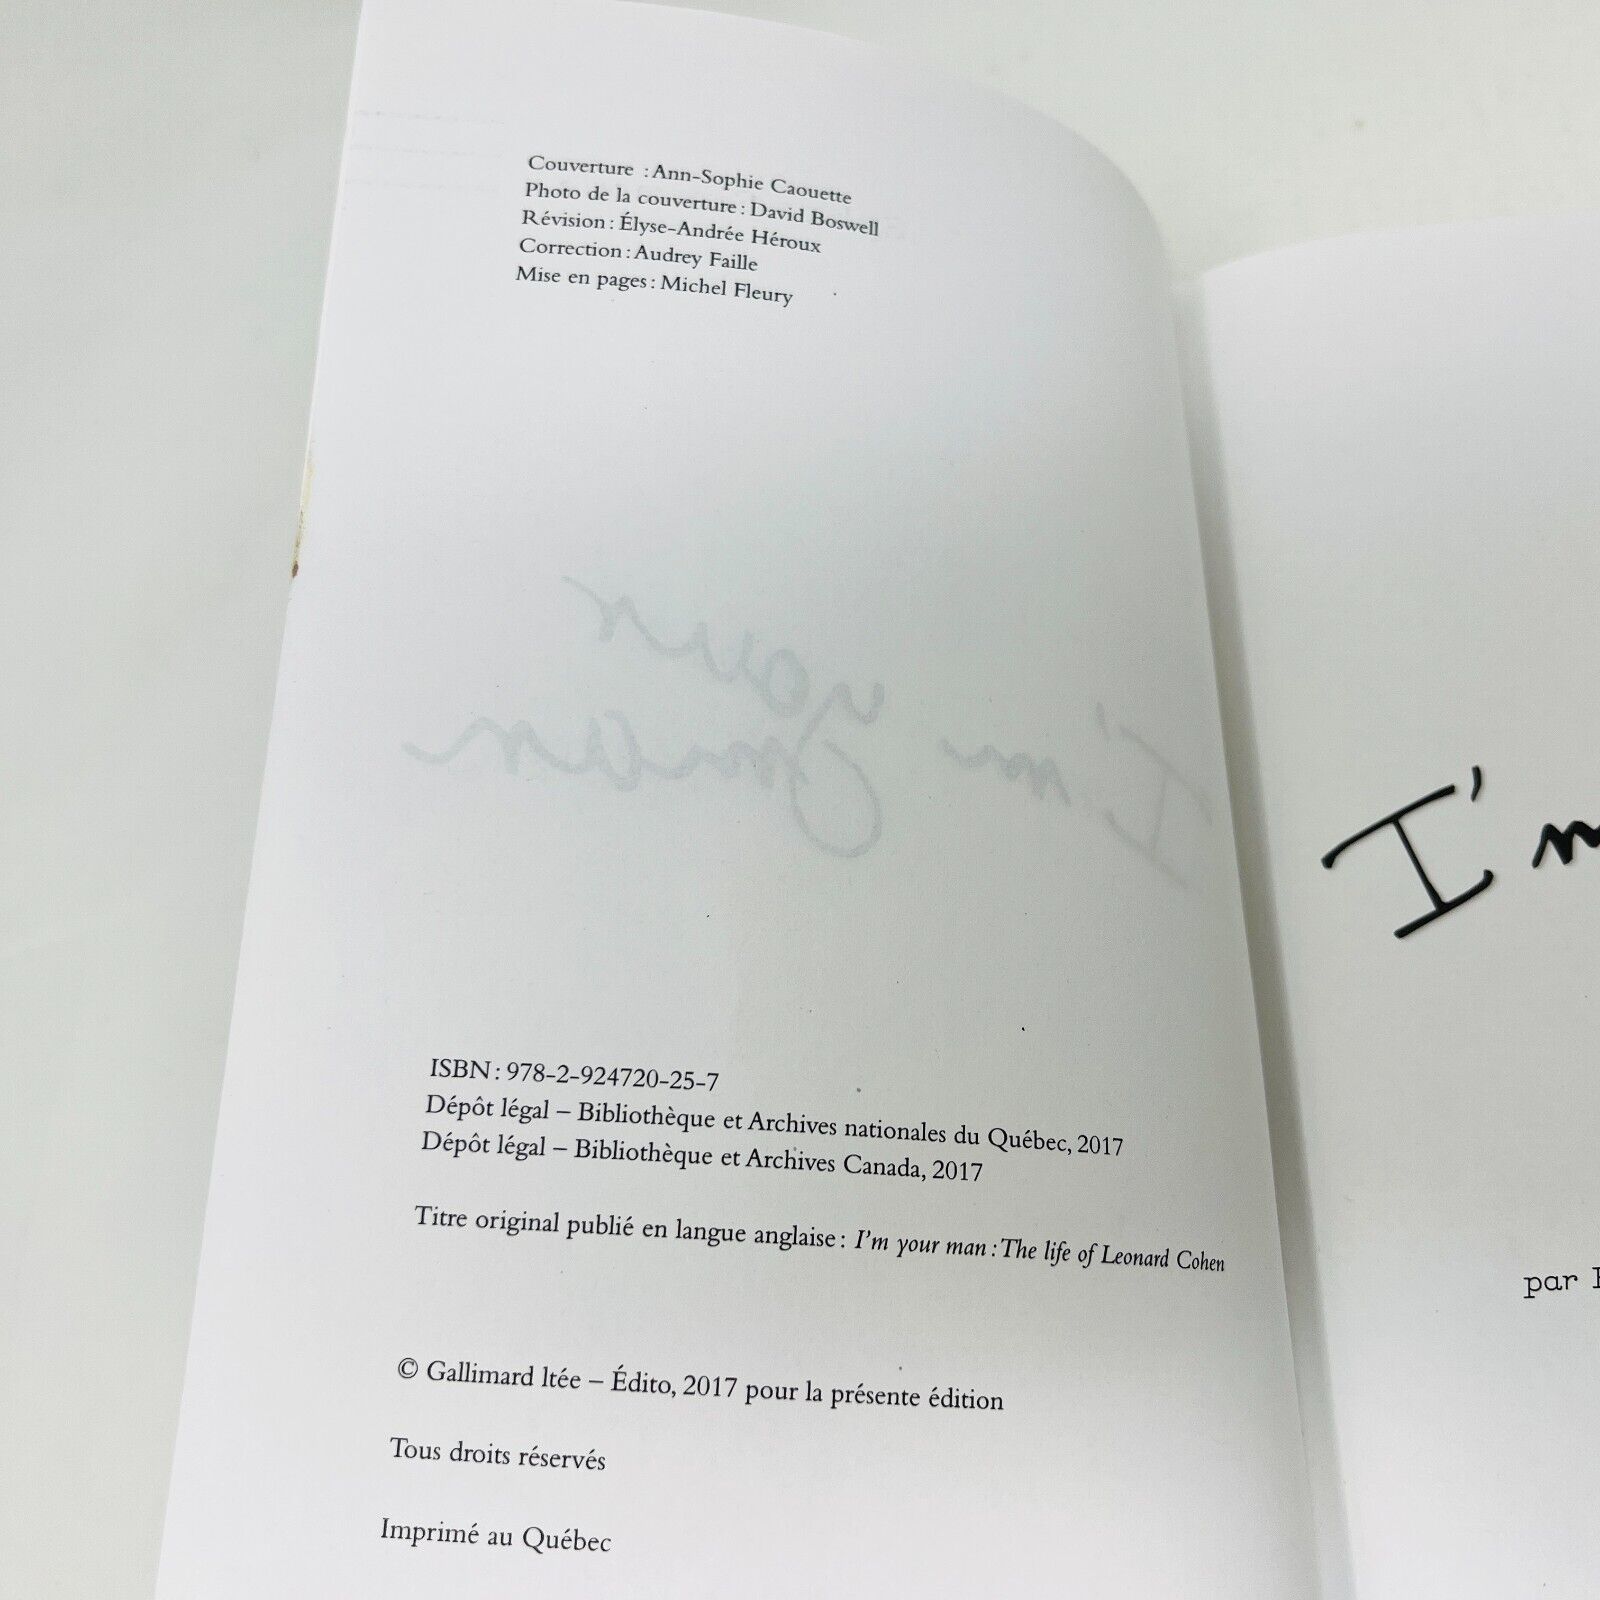 Couverture : Ann-Sophie Caouette
Photo de la couverture : David Boswell
Révision : Élyse-Andrée Héroux
Correction : Audrey Faille
Mise en pages : Michel Fleury
I'm your man
ISBN : 978-2-924720-25-7
Dépôt légal – Bibliothèque et Archives nationales du Québec, 2017
Dépôt légal – Bibliothèque et Archives Canada, 2017
Titre original publié en langue anglaise : I'm your man : The life of Leonard Cohen
© Gallimard ltée – Édito, 2017 pour la présente édition
Tous droits réservés
Imprimé au Québec
I'm
par